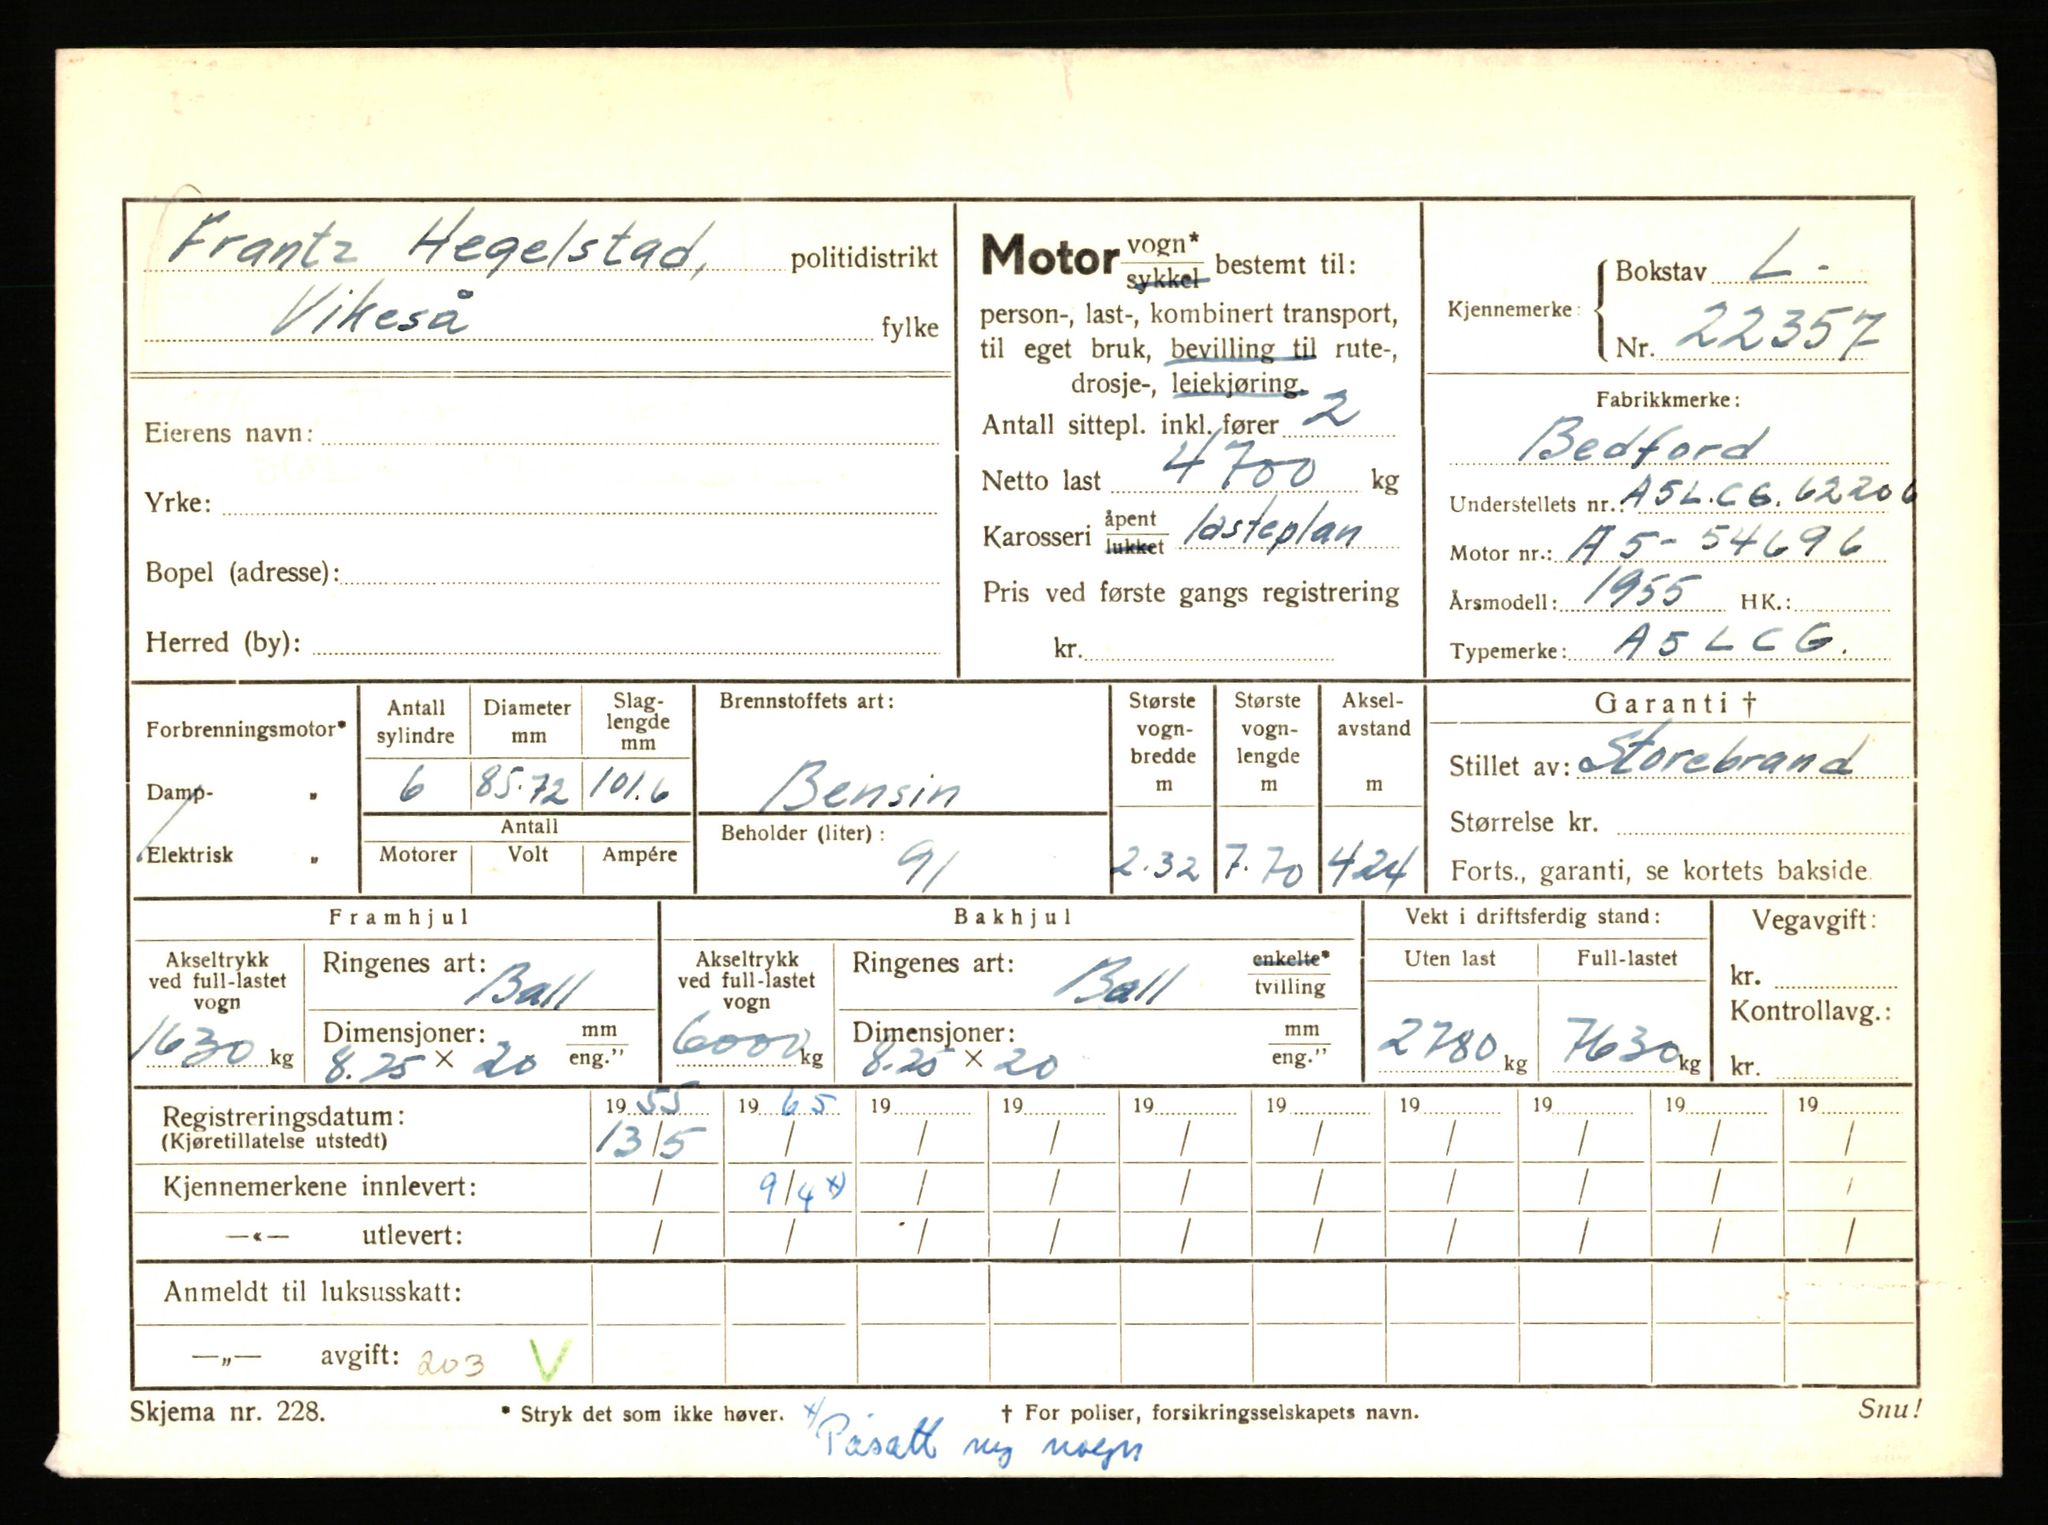 Frantz Hegelstad, politidistrikt
Vikeså fylke
Eierens navn:
Yrke:
Bopel (adresse):
Herred (by):
Motor vogn* / sykkel bestemt til:
person-, last-, kombinert transport,
til eget bruk, bevilling til rute-,
drosje-, leiekjøring.
Antall sittepl. inkl. fører 2
Netto last 4700 kg
Karosseri åpent / lukket lasteplan
Pris ved første gangs registrering
kr.
Kjennemerke: Bokstav L-
Nr. 22357
Fabrikkmerke:
Bedford
Understellets nr.: A5L.CG. 62206
Motor nr.: A5-54696
Årsmodell: 1955 HK.:
Typemerke: A5LCG.
Forbrenningsmotor*
Damp- „
Elektrisk „
Antall sylindre
6
Diameter mm
85.72
Slag-lengde mm
101.6
Antall
Motorer Volt Ampére
Brennstoffets art:
Bensin
Beholder (liter):
91
Største vogn-bredde m
2.32
Største vogn-lengde m
7.70
Aksel-avstand m
424
Garanti †
Stillet av: Storebrand
Størrelse kr.
Forts., garanti, se kortets bakside.
Framhjul
Akseltrykk ved full-lastet vogn
1630 kg
Ringenes art: Ball
Dimensjoner: mm / eng.”
8.25 × 20
Bakhjul
Akseltrykk ved full-lastet vogn
6000 kg
Ringenes art: Ball enkelte* / tvilling
Dimensjoner: mm / eng.”
8.25 × 20
Vekt i driftsferdig stand:
Uten last Full-lastet
2780 kg 7630 kg
Vegavgift:
kr.
Kontrollavg.:
kr.
Registreringsdatum: 19 55 19 65 19 19 19 19 19 19 19 19
(Kjøretillatelse utstedt) 13/5 / / / / / / / / /
Kjennemerkene innlevert: / 9/4 x) / / / / / / / /
—«— utlevert: / / / / / / / / / /
Anmeldt til luksusskatt:
—„— avgift: 203 V
Skjema nr. 228. * Stryk det som ikke høver. † For poliser, forsikringsselskapets navn. Snu!
x) Påsatt ny vogn